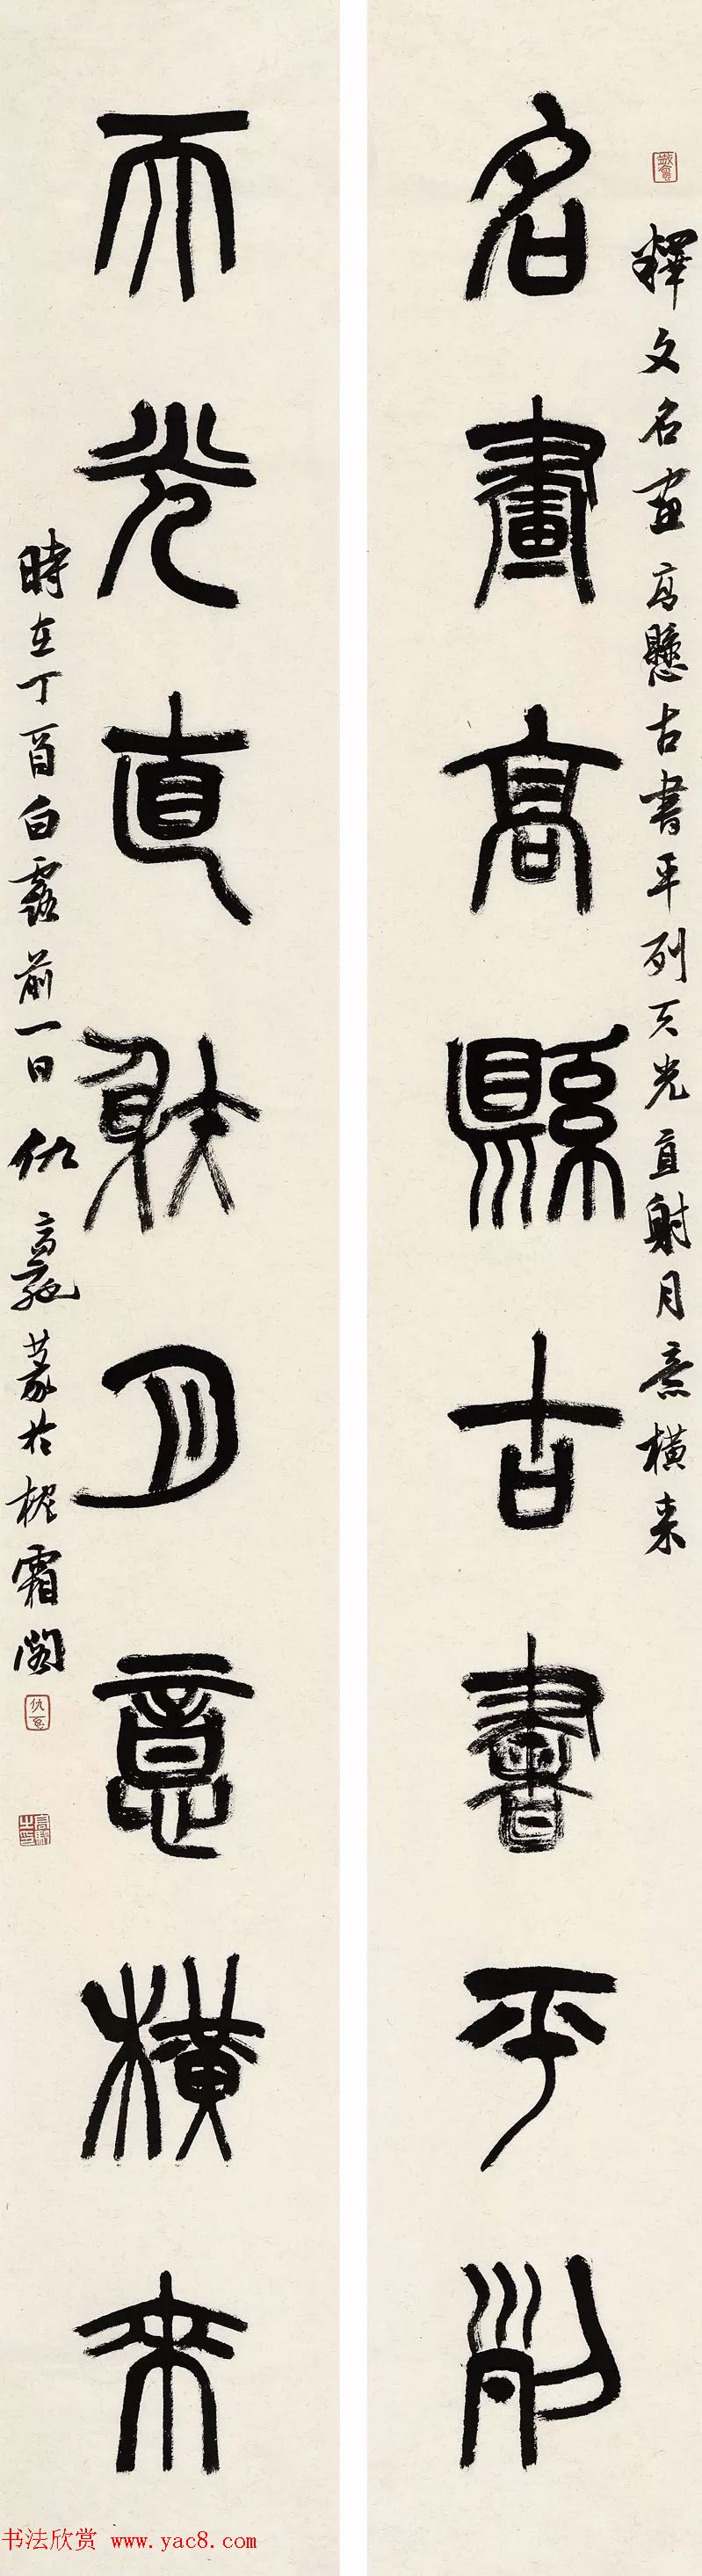 釋文名畫高懸古書平列天光直射月意橫來
名畫高縣古書平列
天光直射月意橫來
時在丁酉白露前一日仇高馳篆於楃霜閣
书法欣赏 www.yac8.com